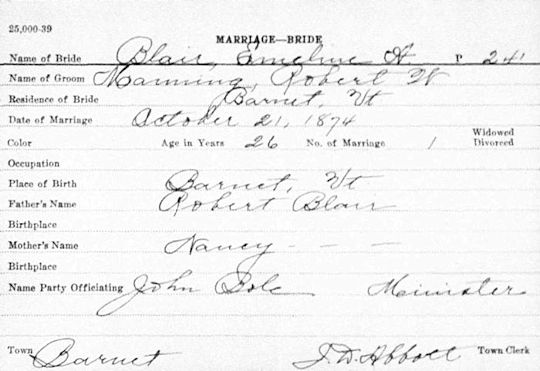 25,000-39
MARRIAGE—BRIDE
Name of Bride Blair, Emeline A. P 241
Name of Groom Manning, Robert W
Residence of Bride Barnet, Vt
Date of Marriage October 21, 1874
Color Age in Years 26 No. of Marriage 1 Widowed Divorced
Occupation
Place of Birth Barnet, Vt
Father's Name Robert Blair
Birthplace
Mother's Name Nancy — — —
Birthplace
Name Party Officiating John Bole Minister
Town Barnet J. D. Abbott Town Clerk